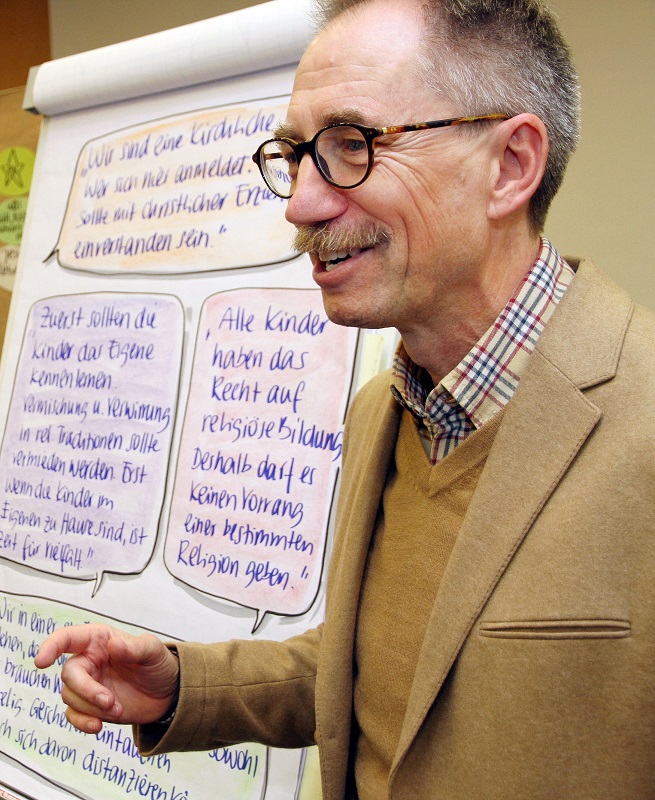 "Wir sind eine kirchliche
Wer sich hier anmeldet,
sollte mit christlicher
einverstanden sein."
Zuerst sollten die
Kinder das Eigene
kennenlernen.
Vermischung u. Verwirrung
in rel. Traditionen sollte
vermieden werden. Erst
wenn die Kinder im
Eigenen zu Hause sind, ist
Zeit für Vielfalt."
"Alle Kinder
haben das
Recht auf
religiöse Bildung
Deshalb darf es
keinen Vorrang
einer bestimmten
Religion geben."
Wir in einer
brauchen
sowohl
sich davon distanzieren